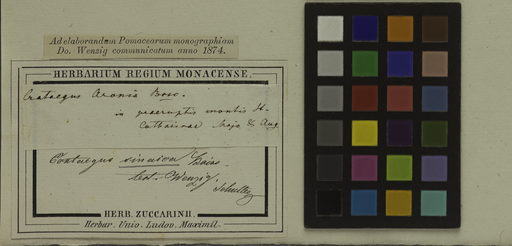 Ad elaborandam Pomacearum monographiam
Do. Wenzig communicatum anno 1874.
HERBARIUM REGIUM MONACENSE.
Crataegus Aronia Bosc.
in praeruptis montis St.
Catharinae Majo & Aug
Crataegus sinaica Boiss.
det. Wenzig.
HERB. ZUCCARINII.
Herbar. Univ. Ludov. Maximil.